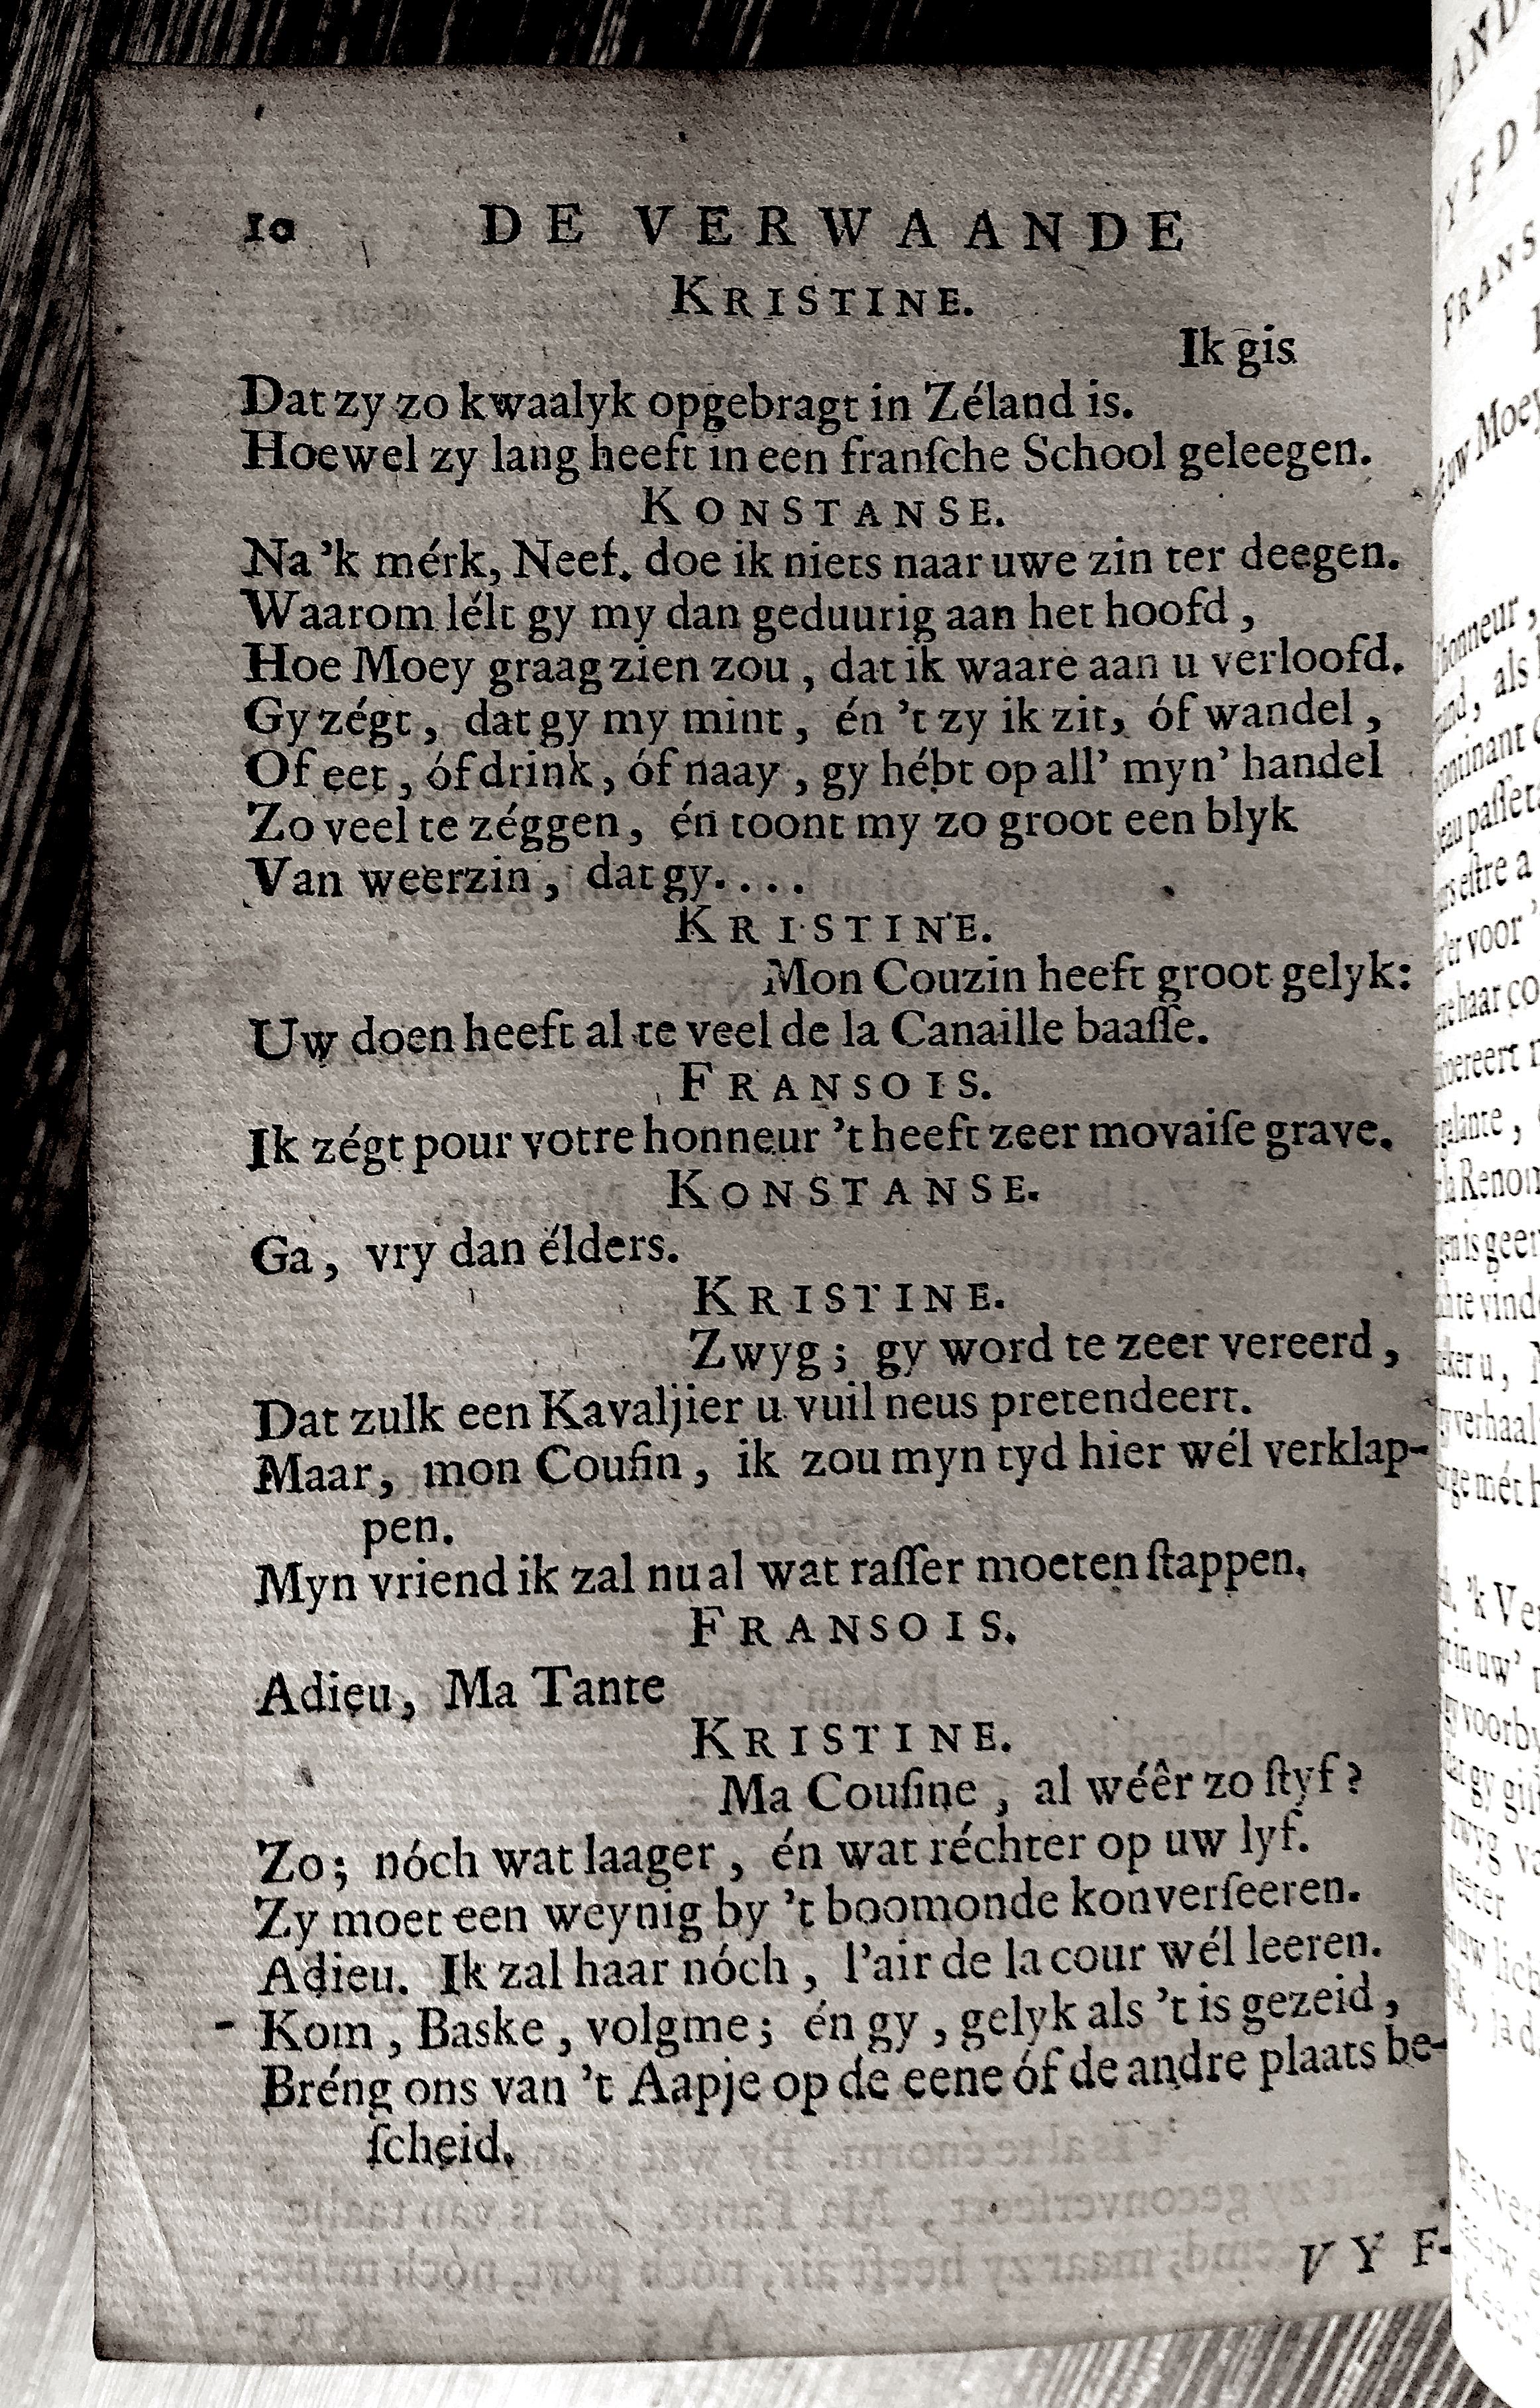 10 DE VERWAANDE
KRISTINE.
Ik gis
Dat zy zo kwaalyk opgebragt in Zéland is.
Hoewel zy lang heeft in een franſche School geleegen.
KONSTANSE.
Na 'k mérk, Neef. doe ik niets naar uwe zin ter deegen.
Waarom lélt gy my dan geduurig aan het hoofd,
Hoe Moey graag zien zou, dat ik waare aan u verloofd.
Gy zégt, dat gy my mint, én 't zy ik zit, óf wandel,
Of eet, óf drink, óf naay, gy hébt op all' myn' handel
Zo veel te zéggen, én toont my zo groot een blyk
Van weerzin, dat gy....
KRISTINE.
Mon Couzin heeft groot gelyk:
Uw doen heeft al te veel de la Canaille baaſſe.
FRANSOIS.
Ik zégt pour votre honneur 't heeft zeer movaiſe grave.
KONSTANSE.
Ga, vry dan élders.
KRISTINE.
Zwyg; gy word te zeer vereerd,
Dat zulk een Kavaljier u vuil neus pretendeert.
Maar, mon Couſin, ik zou myn tyd hier wél verklap-
pen.
Myn vriend ik zal nu al wat raſſer moeten ſtappen.
FRANSOIS.
Adieu, Ma Tante
KRISTINE.
Ma Couſine, al wéêr zo ſtyf?
Zo; nóch wat laager, én wat réchter op uw lyf.
Zy moet een weynig by 't boomonde konverſeeren.
Adieu. Ik zal haar nóch, l'air de la cour wél leeren.
- Kom, Baske, volg me; én gy, gelyk als 't is gezeid,
Bréng ons van 't Aapje op de eene óf de andre plaats be-
ſcheid.
VYF-
FRANS
uw Moey
honneur,
als
continant
voor
haar
galante,
verhaal
'k
in uw'
gy voorby
gy
zwyg